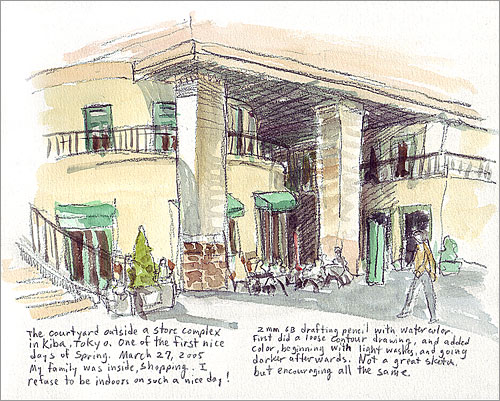 The courtyard outside a store complex
in Kiba, Tokyo. One of the first nice
days of Spring. March 27, 2005
My family was inside, shopping. I
refuse to be indoors on such a nice day!
2mm 6B drafting pencil with watercolor.
First did a loose contour drawing, and added
color, beginning with light washes, and going
darker afterwards. Not a great sketch,
but encouraging all the same.